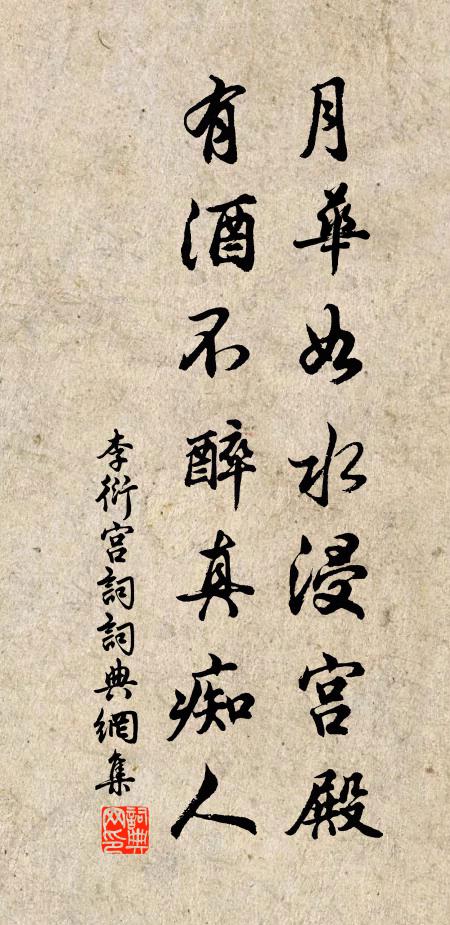 月華如水浸宮殿
有酒不醉真痴人
李衍宮詞詞典網集
詞典網印